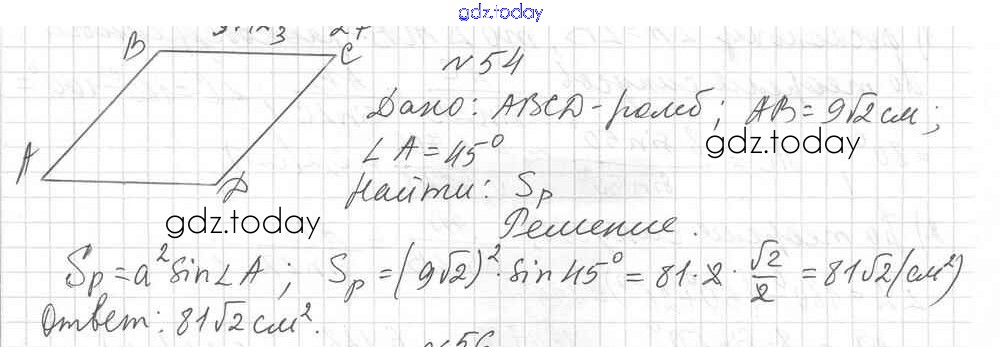 gdz.today
B
C
№ 54
Дано: ABCD - ромб; AB = 9√2 см;
gdz.today
A
∠A = 45°
D
Найти: Sр
gdz.today
Решение.
Sр = a² sin∠A; Sр = (9√2)² · sin 45° = 81 · 2 · √2/2 = 81√2 (см²)
Ответ: 81√2 см².